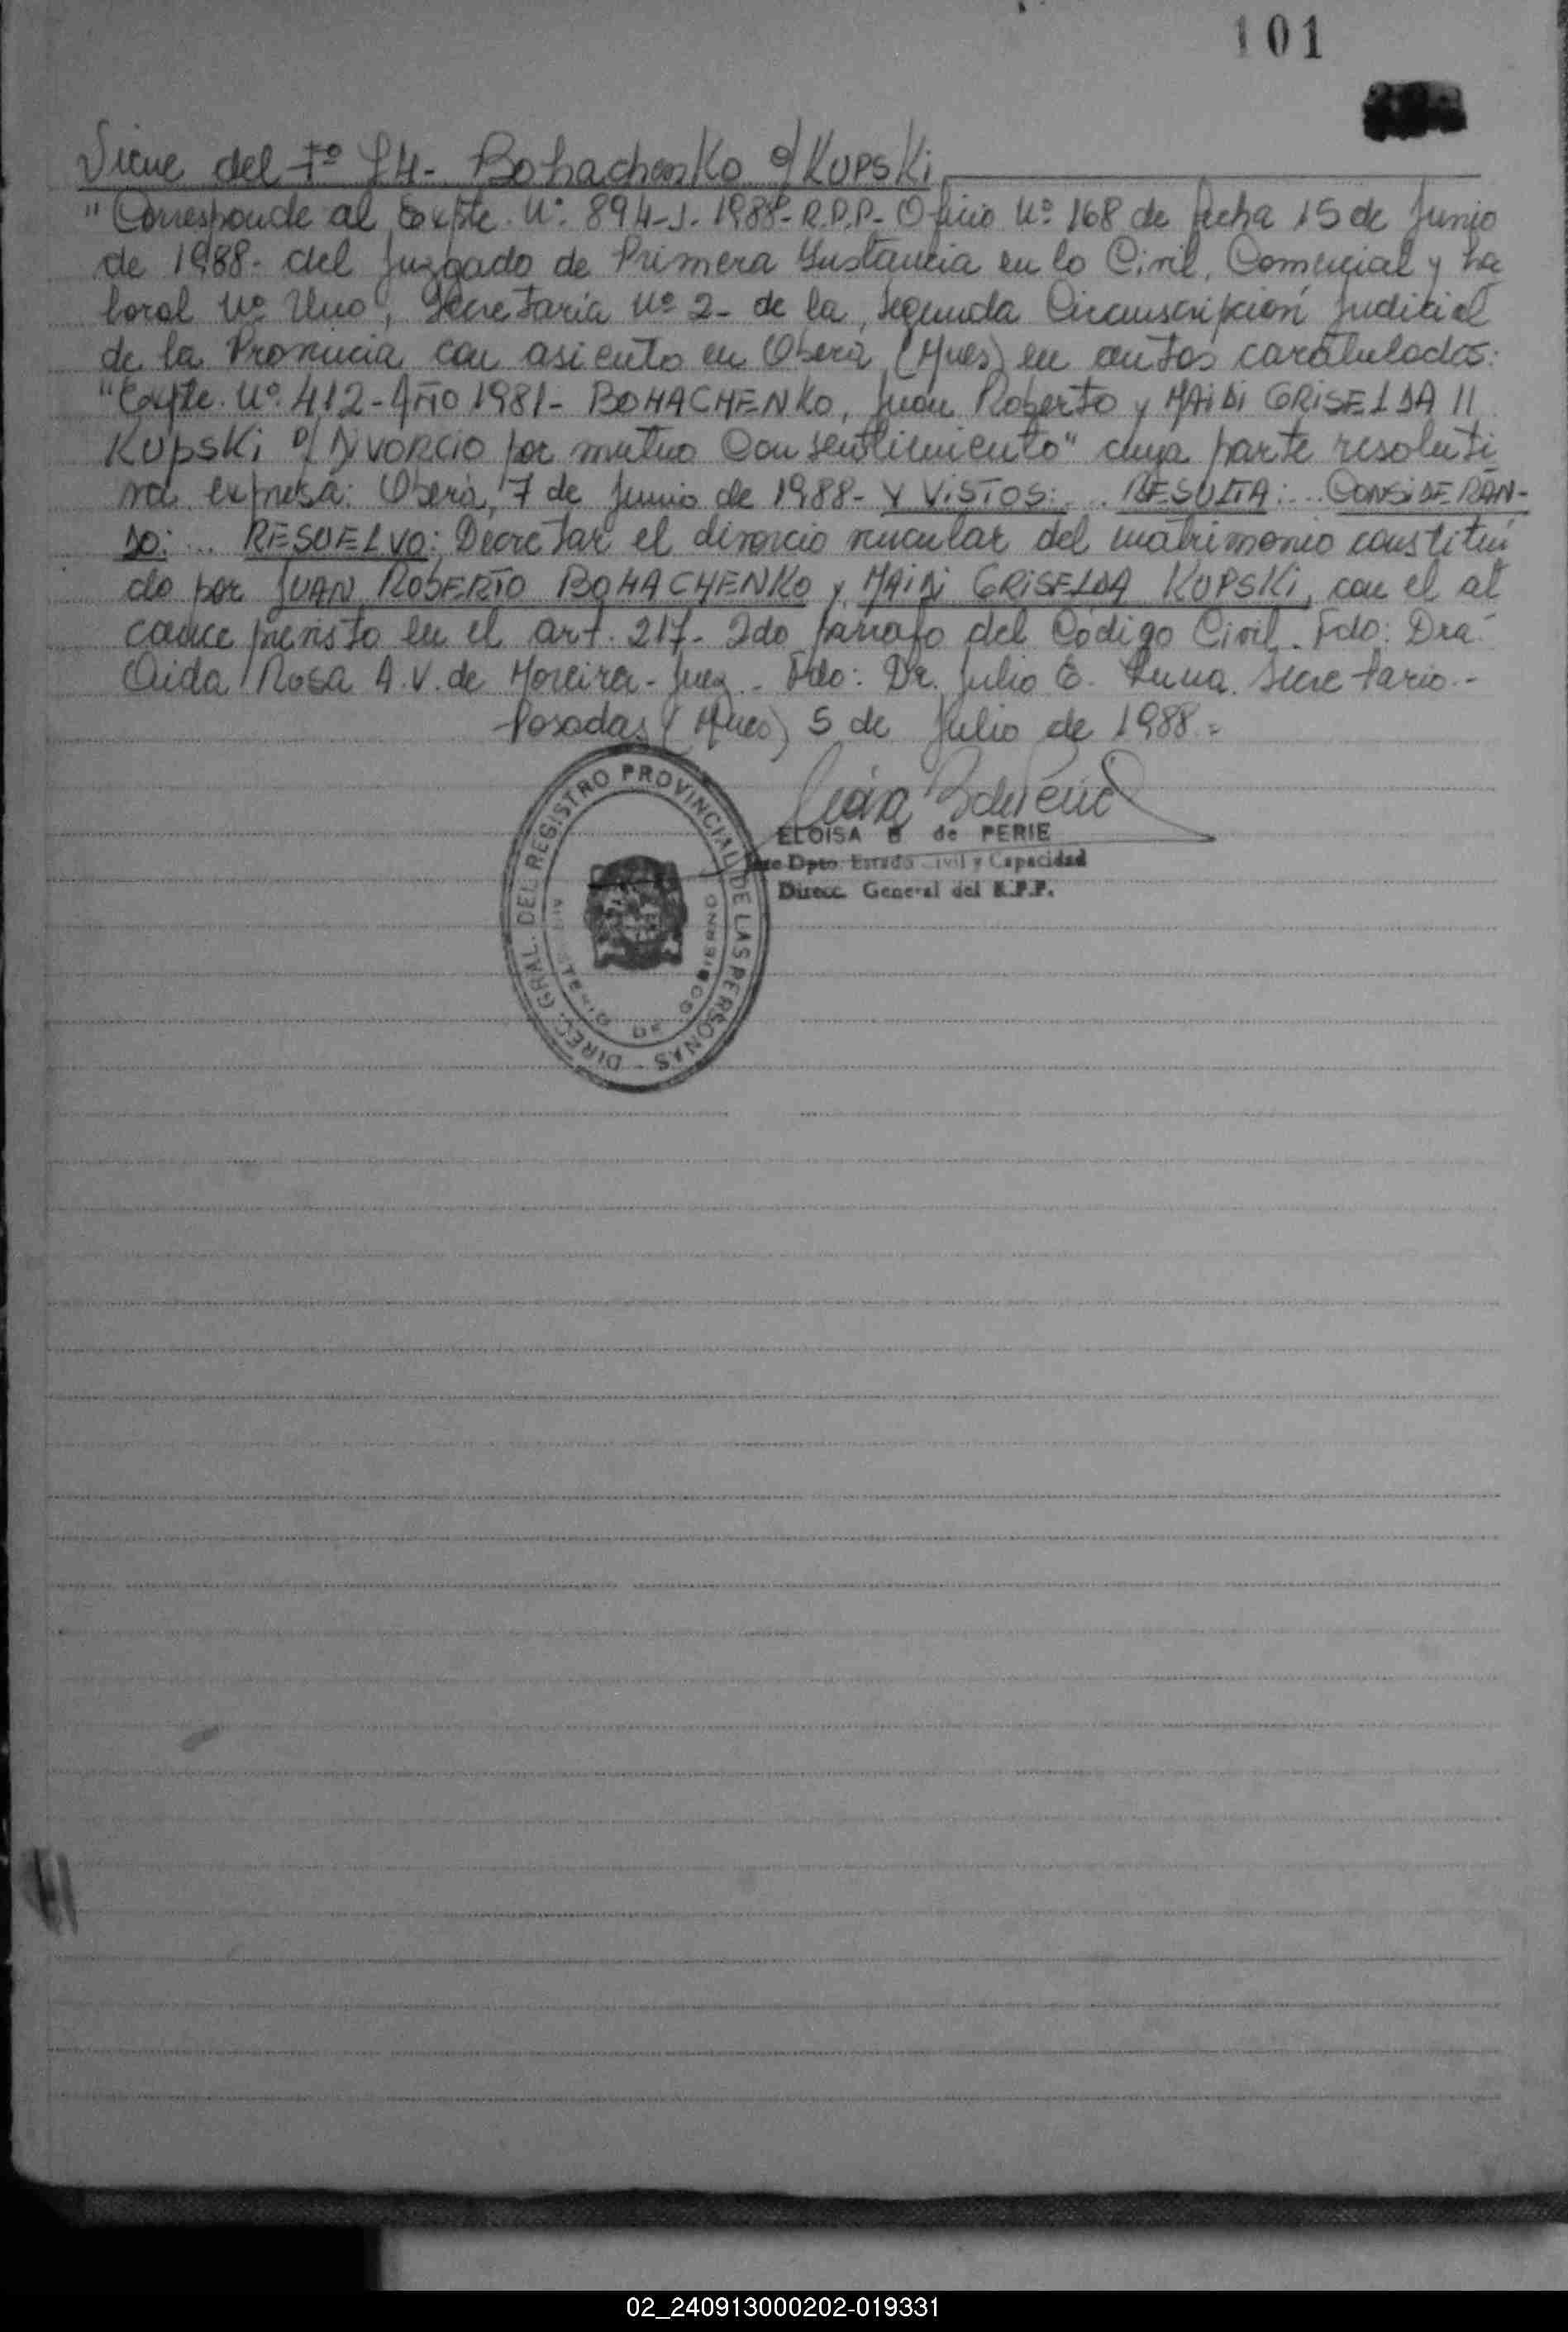 101
Viene del Fº 74- Bohachenko c/ Kupski
"Corresponde al Expte. Nº 894-J-1988-R.P.P- Oficio Nº 168 de fecha 15 de Junio
de 1988- del Juzgado de Primera Instancia en lo Civil, Comercial y La
boral Nº Uno, Secretaría Nº 2- de la Segunda Circunscripción Judicial
de la Provincia con asiento en Oberá (Mnes) en autos caratulados:
"Expte. Nº 412-AÑO 1981- BOHACHENKO, Juan Roberto y MAIDI GRISELDA
KUPSKi s/ DiVORCIO por mutuo Consentimiento" cuya parte resoluti
va expresa: Oberá, 7 de Junio de 1988- Y ViSTOS:... RESULTA:... CONSiDERAN-
DO:... RESUELVO: Decretar el divorcio vincular del matrimonio constitui
do por JUAN ROBERTO BOHACHENKO y MAiDi GRiSELDA KUPSKi, con el al
cance previsto en el art. 217- 2do párrafo del Código Civil. Fdo: Dra
Aida Rosa A.V. de Moreira- Juez- Fdo: Dr. Julio E. Secretario.-
Posadas (Mnes) 5 de Julio de 1988.=
ELOISA B de PERIE
Dpto. Estado Civil y Capacidad
Direcc. General del R.P.P.
DIREC. GRAL. DEL REGISTRO PROVINCIAL DE LAS PERSONAS -
MINISTERIO DE GOBIERNO
02_240913000202-019331